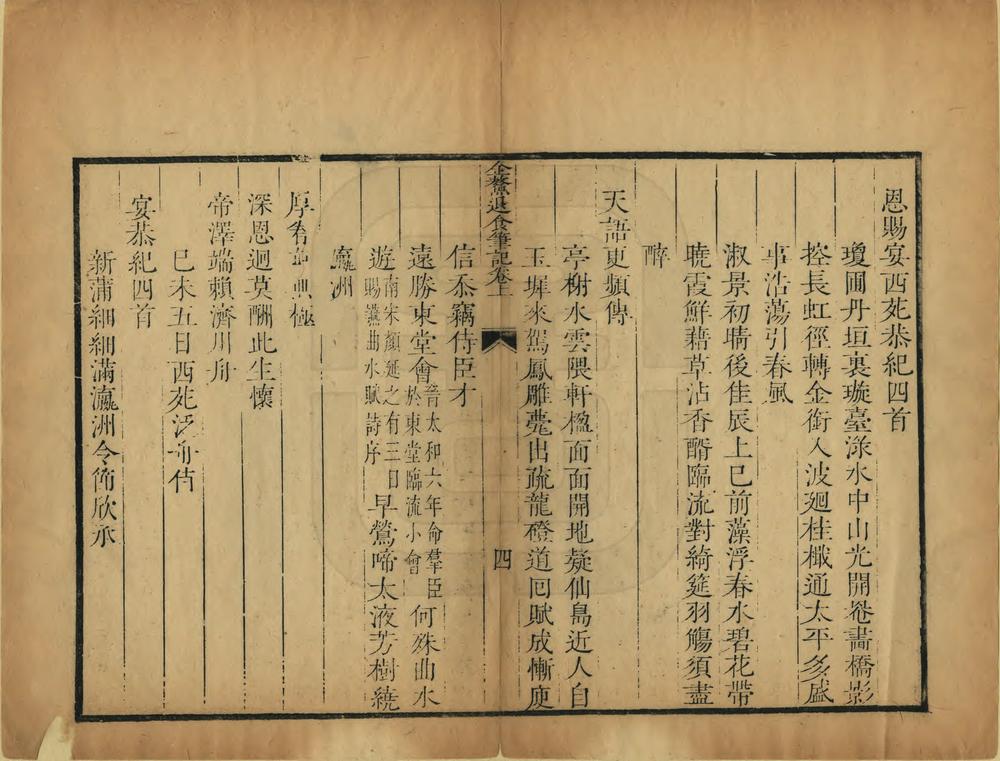 恩賜宴西苑恭紀四首
瓊圃丹垣裏璇臺淥水中山光開卷畵橋影
控長虹徑轉金銜入波廻桂檝通太平多盛
事浩蕩引春風
淑景初晴後佳辰上巳前藻浮春水碧花帶
曉霞鮮藉草沾香醑臨流對綺筵羽觴須盡
醉
天語更頻傳
亭榭水雲隈軒楹面面開地凝仙島近人自
玉墀來駕鳳雕甍出疏龍磴道回賦成慚庾
金鰲退食筆記卷上
四
信忝竊侍臣才
遠勝東堂會晉太和六年命羣臣於東堂臨流小會何殊曲水
遊南宋顔延之有三日賜讌曲水賦詩序早鶯啼太液芳樹繞
瀛洲
厚
典極
深恩迴莫酬此生懷
帝澤端賴濟川舟
巳未五日西苑泛舟
宴恭紀四首
新蒲細細滿瀛洲令節欣承